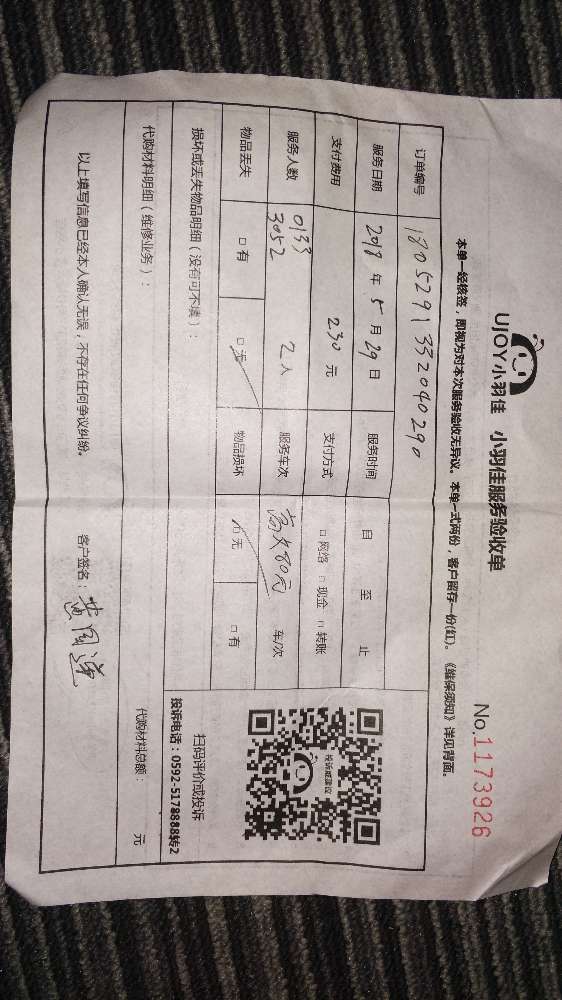 UJOY小羽佳 小羽佳服务验收单
No.1173926
本单一经核签，即视为对本次服务验收无异议。本单一式两份，客户留存一份(红)。《维保须知》详见背面。
订单编号 1805291332040290
服务日期 2018 年 5 月 29 日 服务时间 自 至 止
支付费用 230 元 支付方式 □网络 □现金 □转账
服务人数 0133 3052 2 人 服务车次 80元 车/次
物品丢失 □有 □无 物品损坏 □无 □有
损坏或丢失物品明细（没有可不填）：
投诉或建议
扫码评价或投诉
投诉电话：0592-5178888转2
代购材料明细（维修业务）： 代购材料总额： 元
以上填写信息已经本人确认无误，不存在任何争议纠纷。 客户签名：